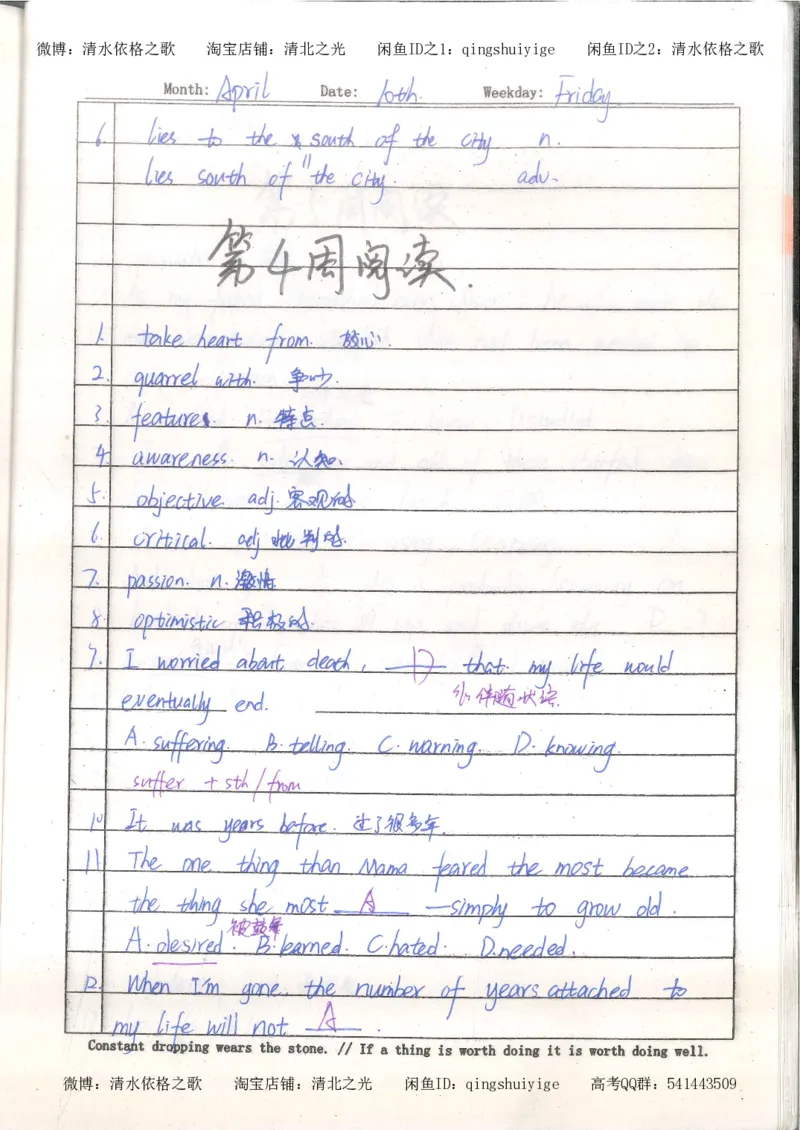 微博：清水依格之歌 淘宝店铺：清北之光 闲鱼ID之1：qingshuiyige 闲鱼ID之2：清水依格之歌
Month: April Date: 10th. Weekday: Friday
6. lies to the south of the city n.
lies south of the city. adv.
第4周阅读.
1. take heart from. 放心.
2. quarrel with. 争吵.
3. features. n. 特点.
4. awareness. n. 认知.
5. objective. adj. 客观的.
6. critical. adj 批判的.
7. passion. n. 激情
8. optimistic 积极的.
9. I worried about death, D that my life would
eventually end. 伴随状语.
A. suffering. B. telling. C. warning. D. knowing.
suffer + sth / from
10 It was years before. 过了很多年.
11 The one thing than Mama feared the most became
the thing she most A —simply to grow old.
被鼓舞
A. desired. B. learned. C. hated. D. needed.
12. When I'm gone, the number of years attached to
my life will not A .
Constant dropping wears the stone. // If a thing is worth doing it is worth doing well.
微博：清水依格之歌 淘宝店铺：清北之光 闲鱼ID：qingshuiyige 高考QQ群：541443509